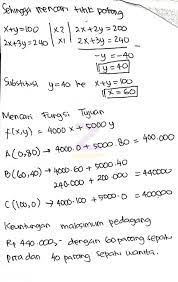 Sehingga mencari titik potong
x+y=100 |x2| 2x+2y=200
2x+3y=240 |x1| 2x+3y=240
-y=-40
y=40
Substitusi y=40 ke x+y=100
x=60
Mencari Fungsi Tujuan
f(x,y) = 4000x+5000y
A(0,80) → 4000.0+5000.80 = 400.000
B(60,40) → 4000.60+5000.40
240.000+200.000 = 440000
C(100,0) → 4000.100+5000.0 = 400000
Keuntungan maksimum pedagang
Rp 440.000,- dengan 60 pasang sepatu
Pria dan 40 pasang sepatu wanita.